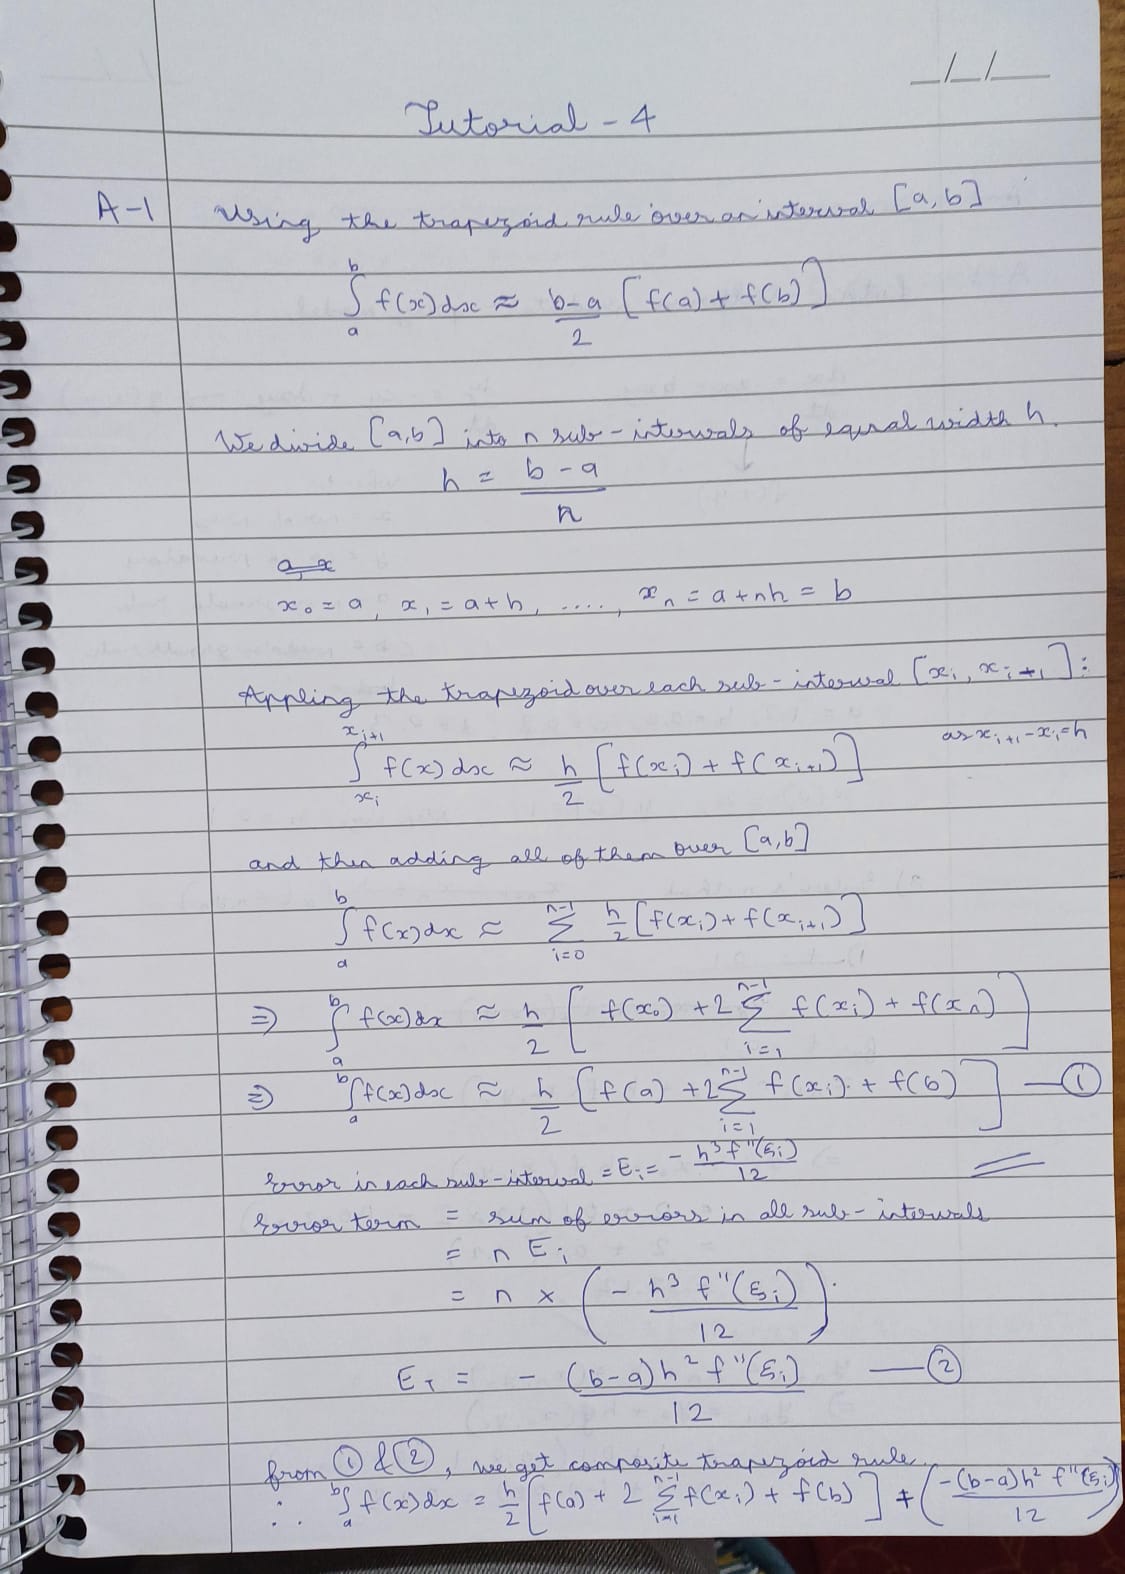 _/_/_
Tutorial - 4
A-1 Using the trapezoid rule over an interval [a, b]
∫_a^b f(x)dx ≈ (b-a)/2 [f(a) + f(b)]
We divide [a,b] into n sub-intervals of equal width h.
h = (b-a)/n
x₀ = a, x₁ = a+h, ....., xₙ = a+nh = b
Appling the trapezoid over each sub-interval [xᵢ, xᵢ₊₁]:
∫_{xᵢ}^{xᵢ₊₁} f(x)dx ≈ h/2 [f(xᵢ) + f(xᵢ₊₁)] as xᵢ₊₁-xᵢ=h
and then adding all of them over [a,b]
∫_a^b f(x)dx ≈ Σ_{i=0}^{n-1} h/2 [f(xᵢ) + f(xᵢ₊₁)]
⇒ ∫_a^b f(x)dx ≈ h/2 [f(x₀) + 2 Σ_{i=1}^{n-1} f(xᵢ) + f(xₙ)]
⇒ ∫_a^b f(x)dx ≈ h/2 [f(a) + 2 Σ_{i=1}^{n-1} f(xᵢ) + f(b)] — ①
Error in each sub-interval = Eᵢ = - h³ f''(ξᵢ)/12
Error term = sum of errors in all sub-intervals
= n Eᵢ
= n × (- h³ f''(ξᵢ)/12)
E_T = - (b-a)h² f''(ξᵢ)/12 — ②
from ① & ②, we get composite trapezoid rule
∴ ∫_a^b f(x)dx = h/2 [f(a) + 2 Σ_{i=1}^{n-1} f(xᵢ) + f(b)] + (-(b-a)h² f''(ξᵢ)/12)